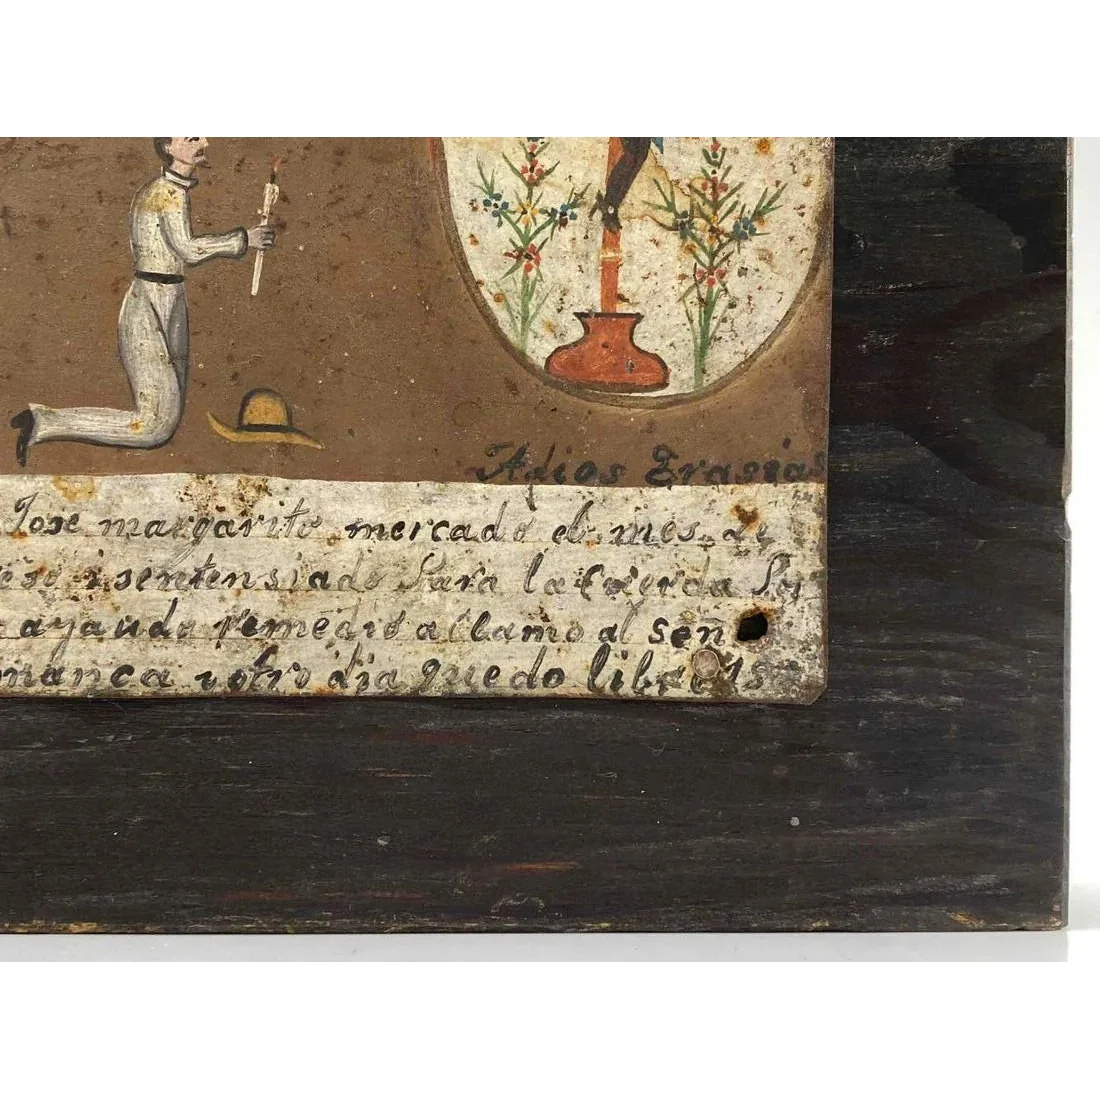 Adios Grasias
Jose margarito mercado el mes. de
reso i sentensiado Para la Cuerda Por
ayando remedio a llamo al señ
manca i otro dia quedo libre